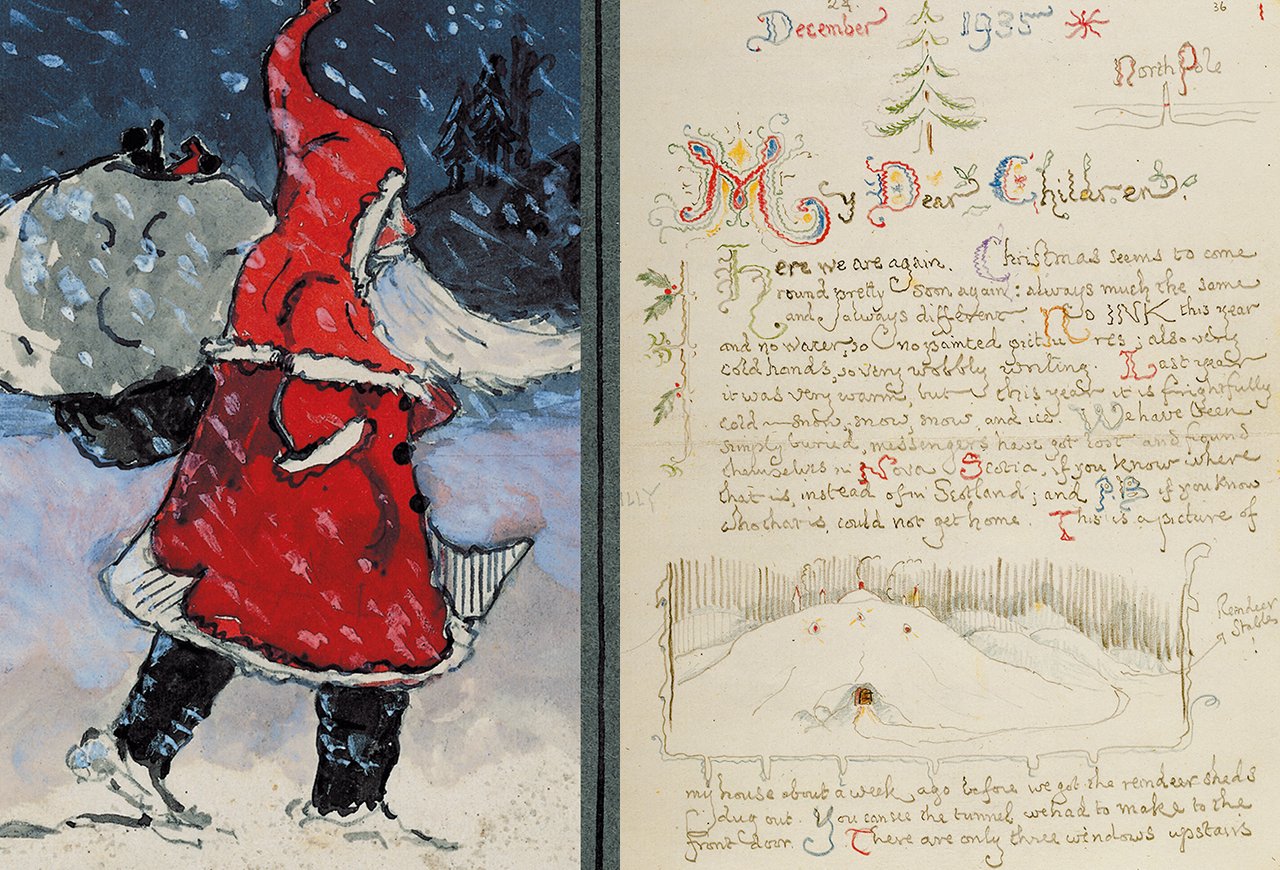 24
36
December 1935
North Pole
My Dear Children.
Here we are again. Christmas seems to come
round pretty soon again: always much the same
and always different. No INK this year
and no water, so no painted pictures; also very
cold hands, so very wobbly writing. Last year
it was very warm, but this year it is frightfully
cold – snow, snow, snow, and ice. We have been
simply buried, messengers have got lost and found
themselves in Nova Scotia, if you know where
that is, instead of in Scotland; and PB, if you know
who that is, could not get home. This is a picture of
Reindeer
Stables
my house about a week ago before we got the reindeer sheds
dug out. You can see the tunnel we had to make to the
front door. There are only three windows upstairs